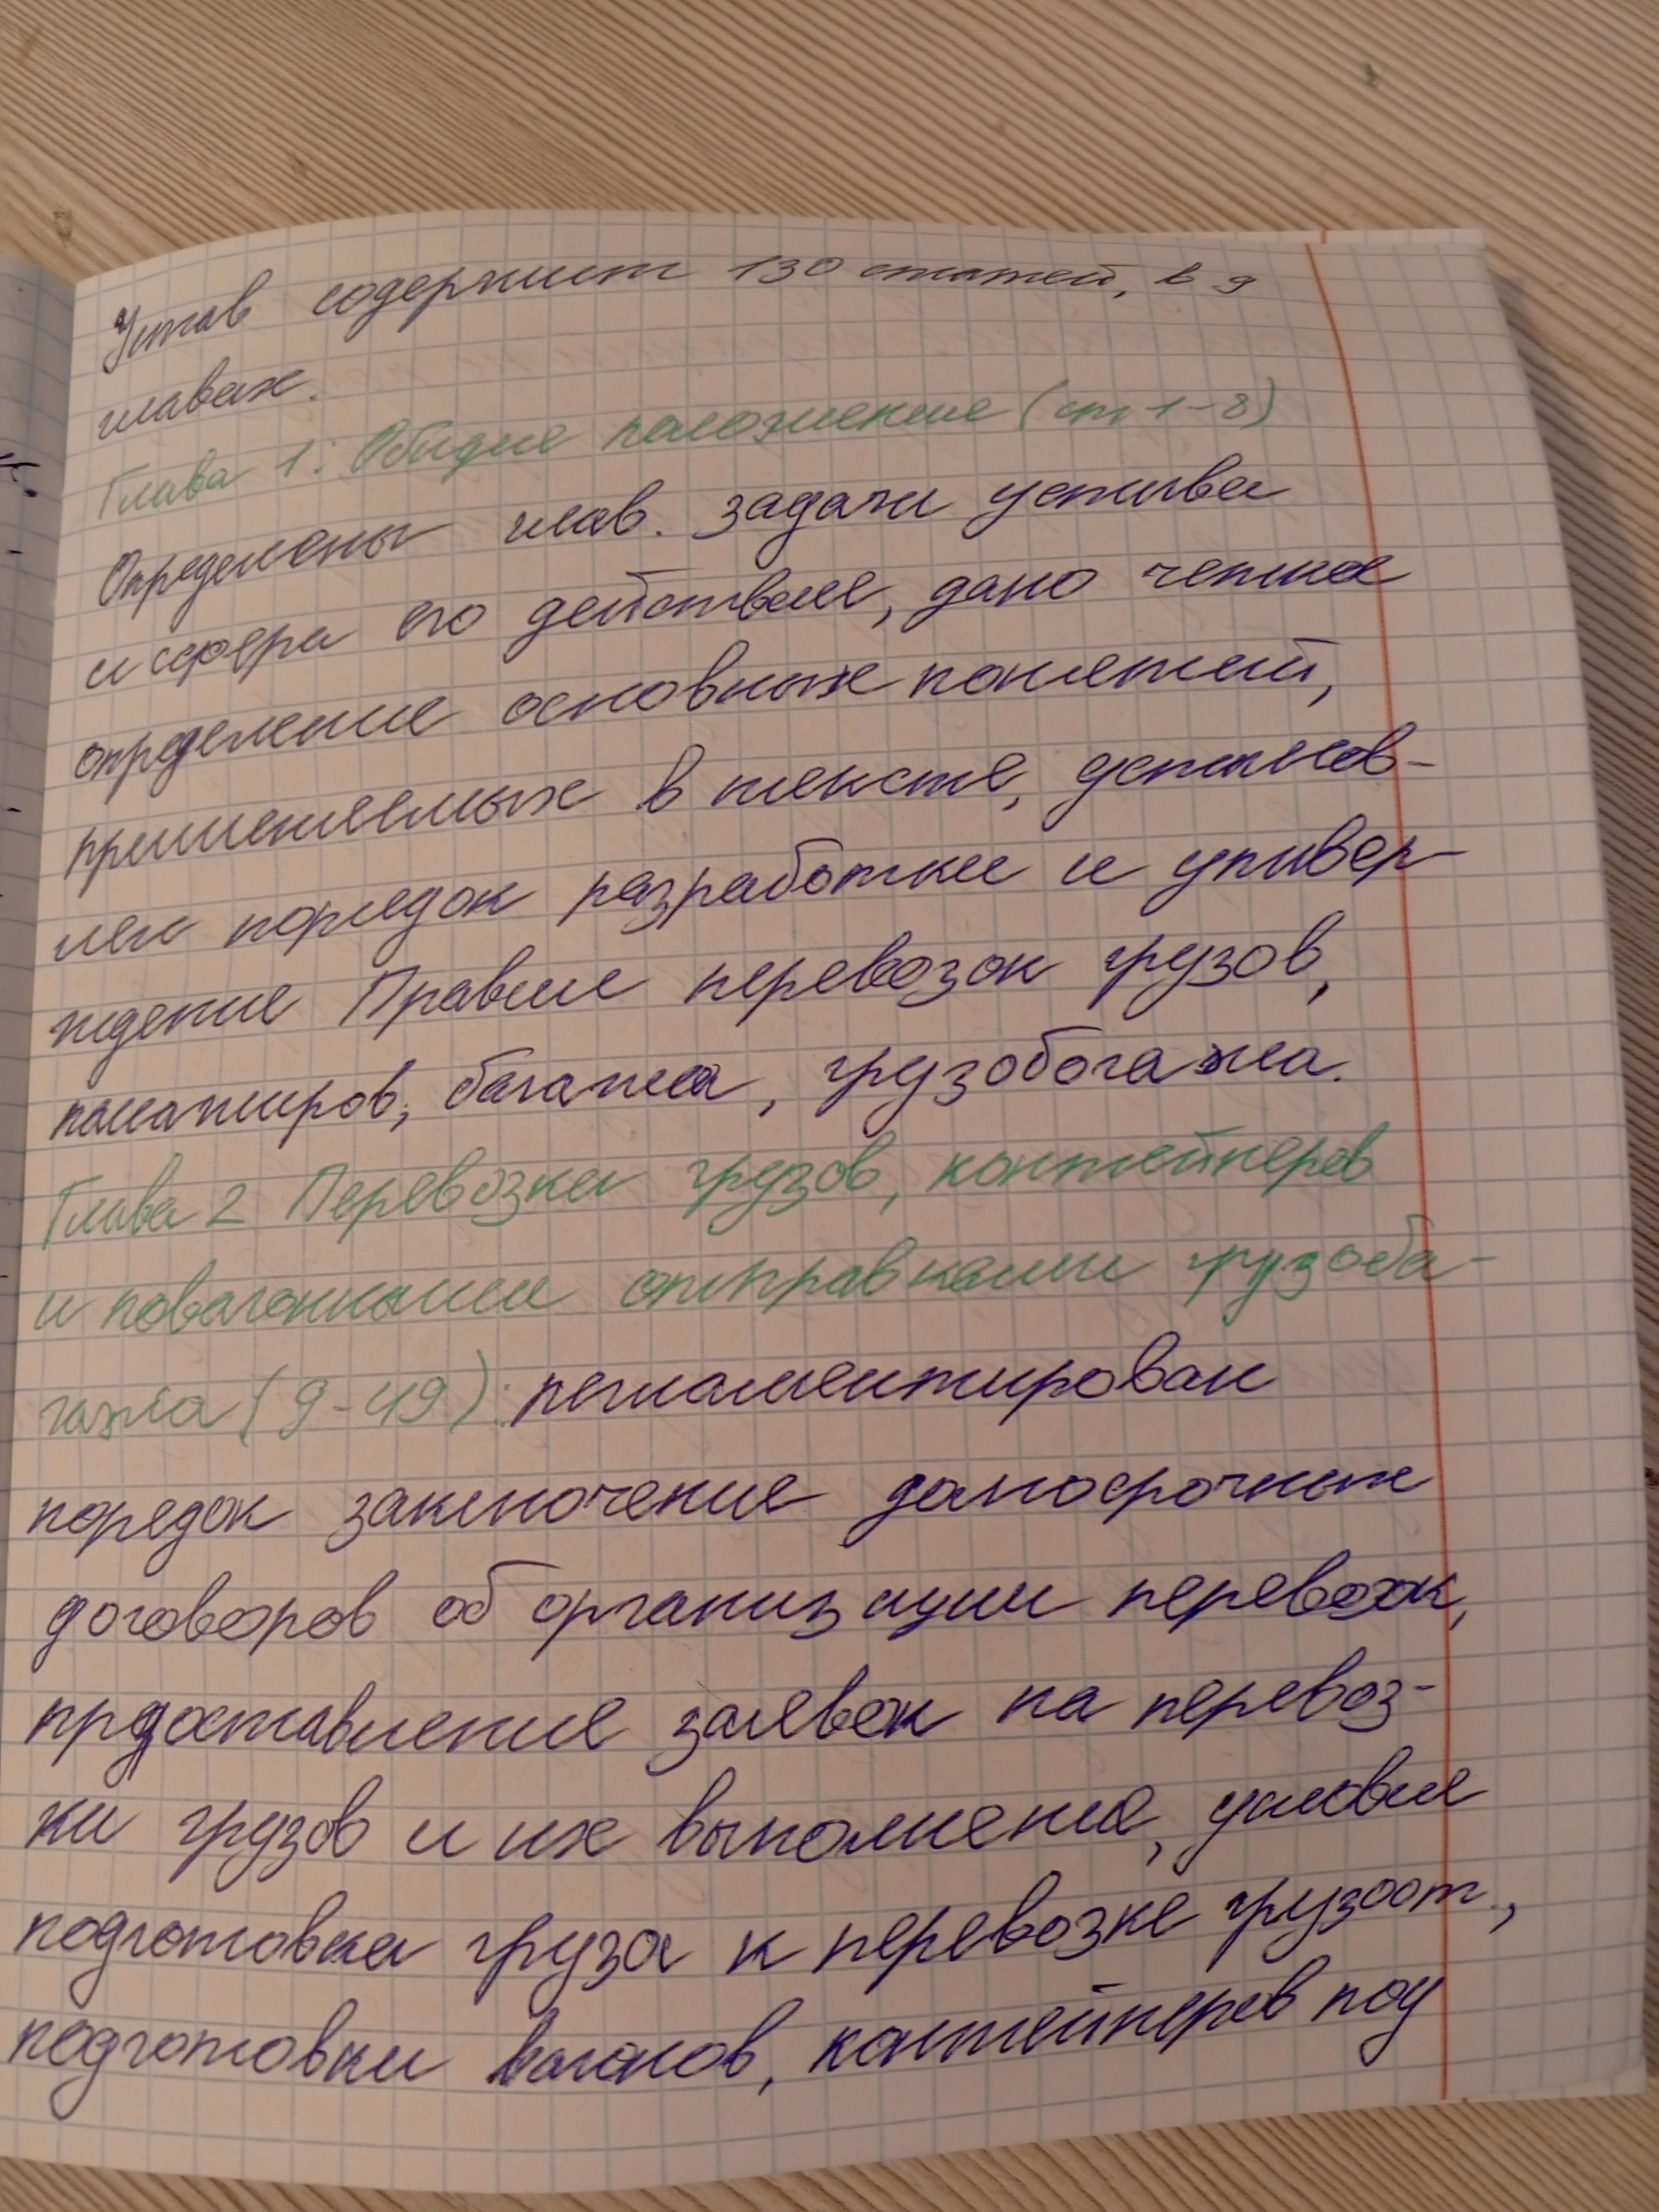 Устав содержит 130 статей, в 9
главах.
Глава 1: Общие положение (ст 1-8)
Определены глав. задачи устава
и сфера его действие, дано четкое
определение основных понятий,
применяемых в тексте, установ-
лен порядок разработки и утвер-
ждение Правил перевозок грузов,
пассажиров, багажа, грузобогажа.
Глава 2 Перевозка грузов, контейнеров
и повагонными отправками грузоба-
гажа (9-49): регламентирован
порядок заключение долгосрочных
договоров об организации перевозок,
предоставление заявок на перевоз-
ки грузов и их выполнение, условие
подготовка груза к перевозке грузоот.,
подготовки вагонов, контейнеров под